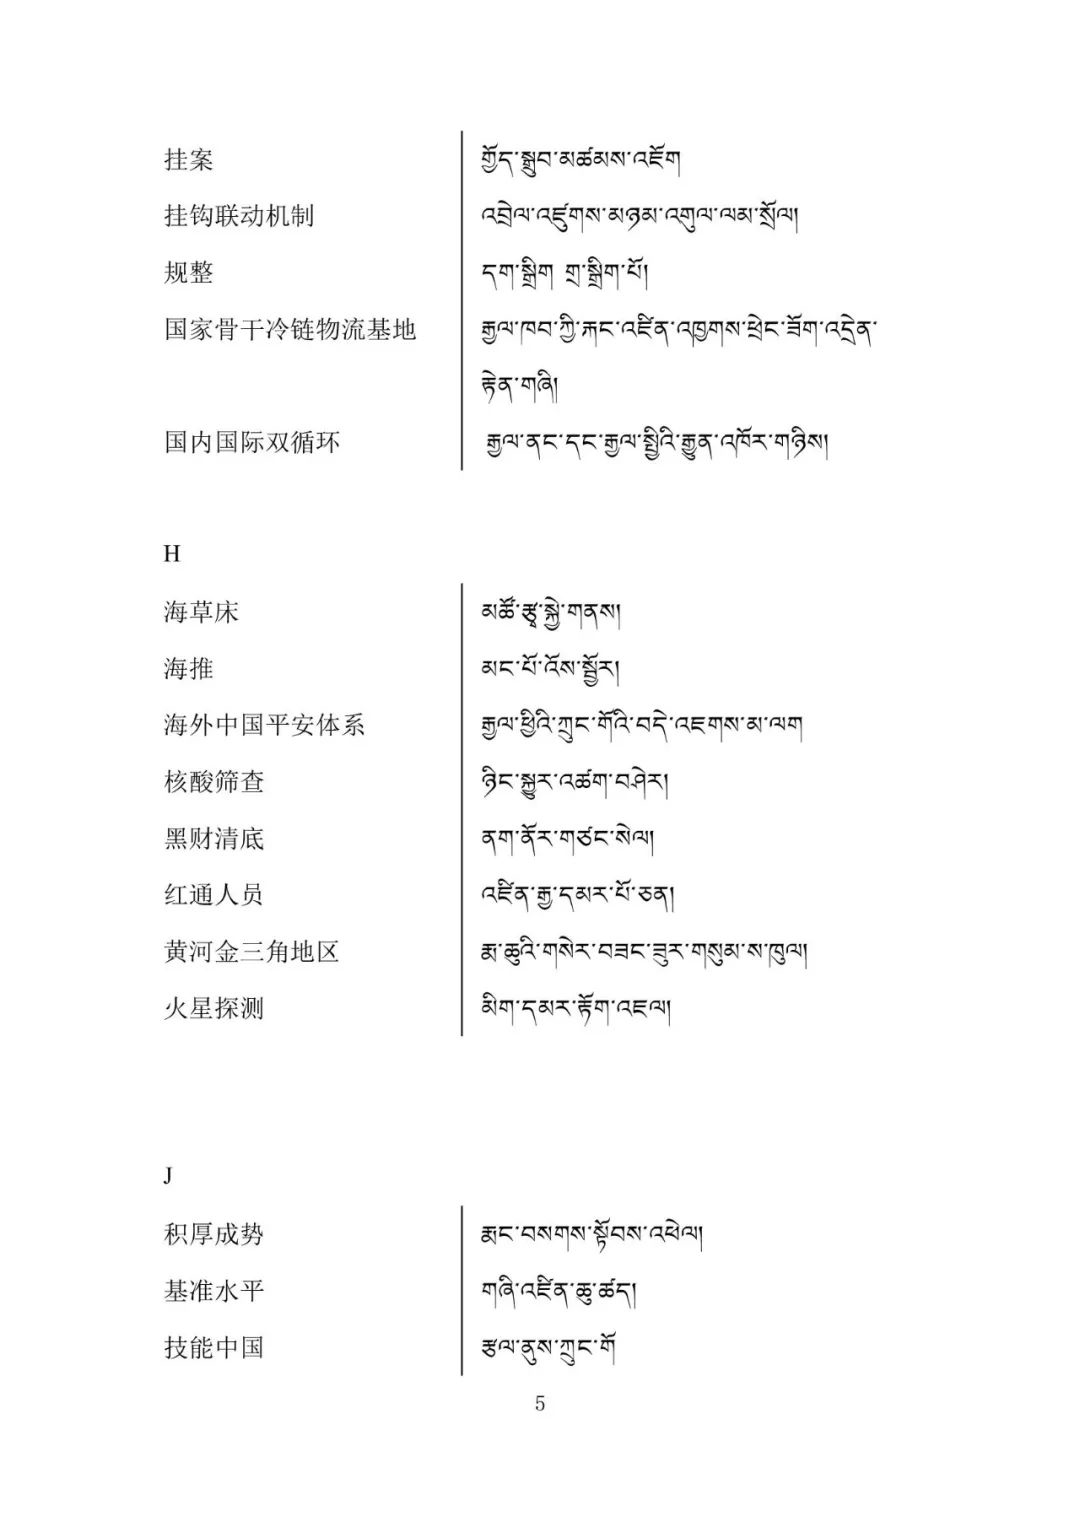 挂案 གྱོད་སྒྲུབ་མཚམས་འཇོག
挂钩联动机制 འབྲེལ་འཛུགས་མཉམ་འགུལ་ལམ་སྲོལ།
规整 དག་སྒྲིག གྲ་སྒྲིག་པོ།
国家骨干冷链物流基地 རྒྱལ་ཁབ་ཀྱི་རྐང་འཛིན་འཁྱགས་ཕྲེང་ཟོག་འདྲེན་
རྟེན་གཞི།
国内国际双循环 རྒྱལ་ནང་དང་རྒྱལ་སྤྱིའི་རྒྱུན་འཁོར་གཉིས།
H
海草床 མཚོ་རྩྭ་སྐྱེ་གནས།
海推 མང་པོ་འོས་སྦྱོར།
海外中国平安体系 རྒྱལ་ཕྱིའི་ཀྲུང་གོའི་བདེ་འཇགས་མ་ལག
核酸筛查 ཉིང་སྐྱུར་འཚག་བཤེར།
黑财清底 ནག་ནོར་གཙང་སེལ།
红通人员 འཛིན་རྒྱ་དམར་པོ་ཅན།
黄河金三角地区 རྨ་ཆུའི་གསེར་བཟང་ཟུར་གསུམ་ས་ཁུལ།
火星探测 མིག་དམར་རྟོག་འཇལ།
J
积厚成势 རྨང་བསགས་སྟོབས་འཕེལ།
基准水平 གཞི་འཛིན་ཆུ་ཚད།
技能中国 རྩལ་ནུས་ཀྲུང་གོ
5